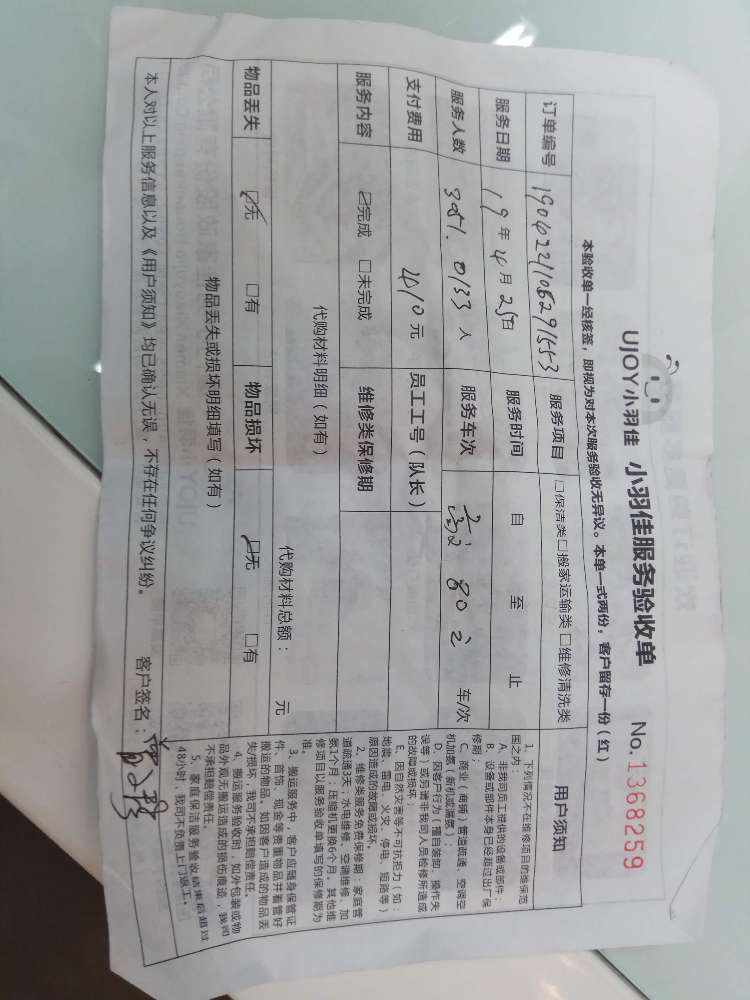 UJOY小羽佳 小羽佳服务验收单 No.1368259
本验收单一经核签，即视为对本次服务验收无异议。本单一式两份，客户留存一份（红）
订单编号 190422110629 1553 服务项目 □保洁类□搬家运输类 □维修清洗类
服务日期 19年4月25日 服务时间 自 至 止
服务人数 0133 人 服务车次 80 车/次
支付费用 410元 员工工号（队长）
服务内容 ☑完成 □未完成 维修类保修期
代购材料明细（如有） 代购材料总额： 元
物品丢失 ☑无 □有 物品损坏 ☑无 □有
物品丢失或损坏明细填写（如有）
本人对以上服务信息以及《用户须知》均已确认无误，不存在任何争议纠纷。 客户签名：
用户须知
1、下列情况不在维修项目的维保范
围之内：
A、非我司员工提供的设备或部件；
B、设备或部件本身已经超过出厂保
修期；
C、商业（商铺）管道疏通、空调空
机加氨（新机或漏氨）；
D、因客户行为（擅自装卸、操作失
误等）或另请非我司人员检修所造成
的故障或损坏；
E、因自然灾害等不可抗拒力（如：
地震、雷电、火灾、停电、短路等）
原因造成的故障或损坏。
2、维修类服务免费保修期：家庭管
道疏通3天；水电维修、空调维修、加
氨1个月；压缩机更换6个月。其他维
修项目以服务验收单填写的保修期为
准。
3、搬运服务中，客户应随身保管证
件、首饰、现金等贵重物品并看管好
搬运的物品。如因客户造成的物品丢
失/损坏，我司不承担赔偿责任。
4、搬运服务验收时，如外包装或物
品外观无搬运造成的损伤痕迹，我司
不承担赔偿责任。
5、家庭保洁服务验收结束后超过
48小时，我司不负责上门返工。